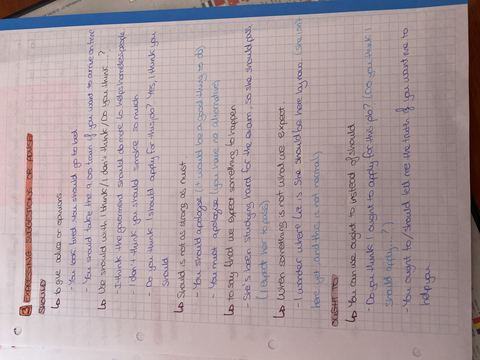 3 EXPRESSING SUGGESTIONS OR ADVISE
SHOULD
↳ to give advise or opinions
- You look tired. You should go to bed
- You should take the 9.00 train if you want to arrive on time
↳ We should with I think / I don't think / Do you think...?
- I think the goverment should do more to help homeless people
- I don't think you should smoke so much.
- Do you think I should apply for this job? Yes, I think you
should
↳ Should is not as strong as must
- You should apologise (it would be a good thing to do)
- You must apologise (you have no alternative)
↳ to say that we expect something to happen
- She's been studying hard for the exam, so she should pass
(I expect her to pass)
↳ When something is not what we expect
- I wonder where Liz is. She should be here by now (she isn't
here yet and this is not normal)
OUGHT TO
↳ You can use ought to instead of should
- Do you think I ought to apply for this job? (Do you think I
should apply...?)
- You ought to / should tell me the truth if you want me to
help you